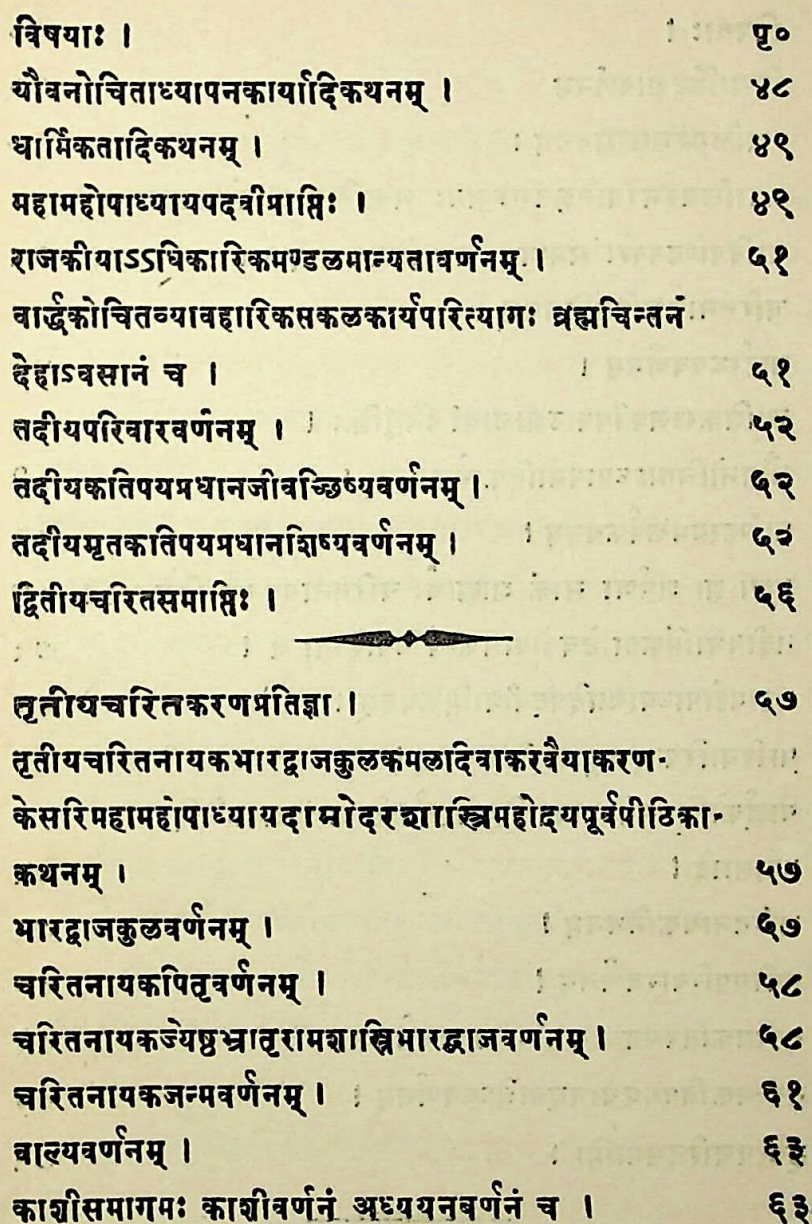 विषयाः । पृ०
यौवनोचिताध्यापनकार्यादिकथनम् । ४८
धार्मिकतादिकथनम् । ४९
महामहोपाध्यायपदवीप्राप्तिः । ४९
राजकीयाऽऽधिकारिकमण्डलमान्यतावर्णनम् । ५१
वार्द्धकोचितव्यावहारिकसकलकार्यपरित्यागः ब्रह्मचिन्तनं
देहाऽवसानं च । ५१
तदीयपरिवारवर्णनम् । ५२
तदीयकतिपयप्रधानजीवच्छिष्यवर्णनम् । ५२
तदीयमृतकतिपयप्रधानशिष्यवर्णनम् । ५२
द्वितीयचरितसमाप्तिः । ५६
तृतीयचरितकरणप्रतिज्ञा । ५७
तृतीयचरितनायकभारद्वाजकुलकमलदिवाकरवैयाकरण-
केसरिमहामहोपाध्यायदामोदरशास्त्रिमहोदयपूर्वपीठिका-
कथनम् । ५७
भारद्वाजकुलवर्णनम् । ५७
चरितनायकपितृवर्णनम् । ५८
चरितनायकज्येष्ठभ्रातृरामशास्त्रिभारद्वाजवर्णनम् । ५८
चरितनायकजन्मवर्णनम् । ६१
वाल्यवर्णनम् । ६३
काशीसमागमः काशीवर्णनं अध्ययनवर्णनं च । ६३